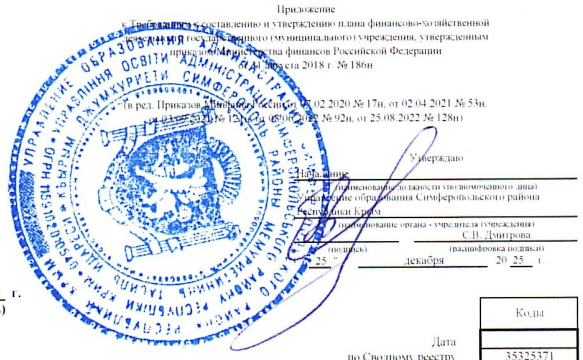 Приложение
к Требованиям к составлению и утверждению плана финансово-хозяйственной
деятельности государственного (муниципального) учреждения, утвержденным
приказом Министерства финансов Российской Федерации
от 31 августа 2018 г. № 186н
(в ред. Приказов Минфина России от 07.02.2020 № 17н, от 02.04.2021 № 53н,
от 03.09.2021 № 121н, от 08.06.2022 № 92н, от 25.08.2022 № 128н)
Утверждаю
Начальник
(наименование должности уполномоченного лица)
Управление образования Симферопольского района
Республики Крым
(наименование органа - учредителя (учреждения)
С.В. Дмитрова
(подпись) (расшифровка подписи)
25 " декабря 20 25 г.
г.
Коды
Дата
по Сводному реестру 35325371
УПРАВЛЕНИЕ ОБРАЗОВАНИЯ
УПРАВЛІННЯ ОСВІТИ АДМІНІСТРАЦІЇ
РЕСПУБЛІКИ КРИМ